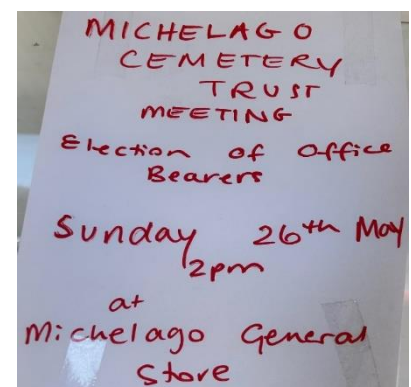 MICHELAGO
CEMETERY
TRUST
MEETING
Election of Office
Bearers
Sunday 26th May
2pm
at
Michelago General
Store